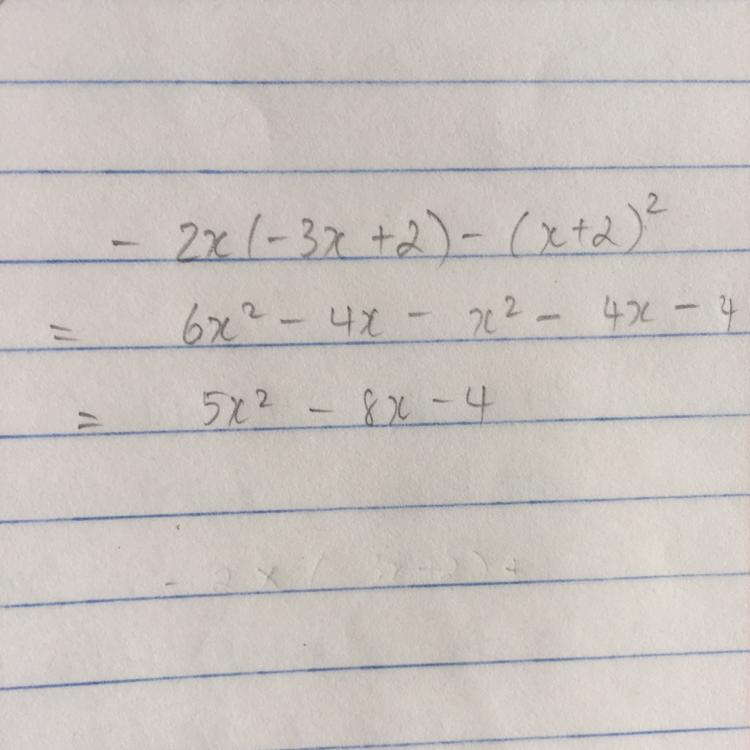 - 2x(-3x+2)-(x+2)²
= 6x² - 4x - x² - 4x - 4
= 5x² - 8x - 4